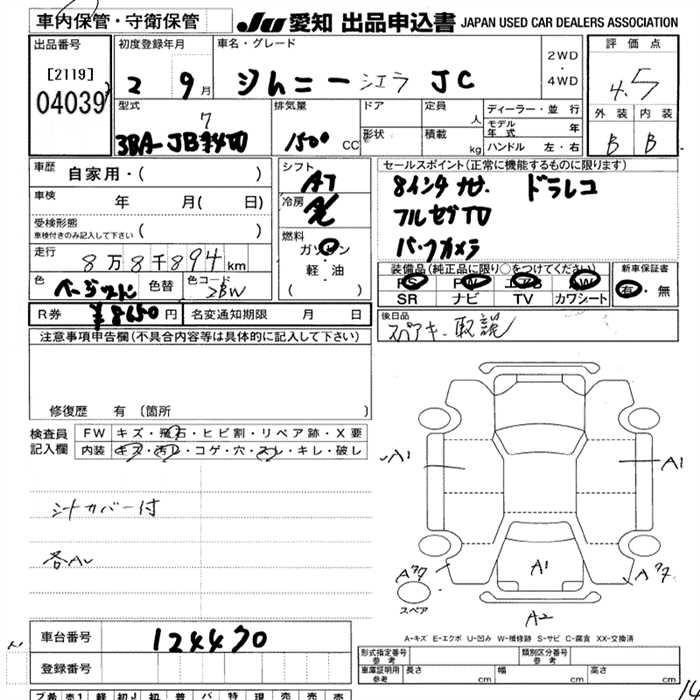 車内保管・守衛保管
JU 愛知 出品申込書 JAPAN USED CAR DEALERS ASSOCIATION
出品番号 初度登録年月 車名・グレード 評価点
[2119]
04039
2 9月 ジムニー シエラ JC
2WD
・
4WD
4.5
外装 内装
B B
型式 排気量 ドア 定員 人 ディーラー・並行
3BA-JB74W 1500 CC
形状 積載 kg
モデル年式 年
ハンドル 左・右
車歴 自家用・( )
車検 年 月( 日)
受検形態
車検付きのみ記入して下さい ( )
走行 8万8千894km
色 ベージュツートン 色替 色コード 2BW
R券 ¥8650円 名変通知期限 月 日
シフト AT
冷房 AC
燃料
ガソリン
・
軽・油
( )
セールスポイント(正常に機能するものに限ります)
8インチナビ ドラレコ
フルセグTV
バックカメラ
装備品(純正品に限り○をつけてください) 新車保証書
PS PW エアB AW
SR ナビ TV カワシート
有・無
後日品
スペアキー 取説
注意事項申告欄(不具合内容等は具体的に記入して下さい)
修復歴 有(箇所 )
検査員記入欄
FW キズ・飛石・ヒビ割・リペア跡・X要
内装 キズ・汚レ・コゲ・穴・スレ・キレ・破レ
シートカバー付
A1 A1
A1
スペア
A2
A-キズ E-エクボ U-凹み W-補修跡 S-サビ C-腐食 XX-交換済
車台番号 124470
登録番号
型式指定番号 参考 類別区分番号 参考
車庫証明用 参考 長さ cm 幅 cm 高さ cm